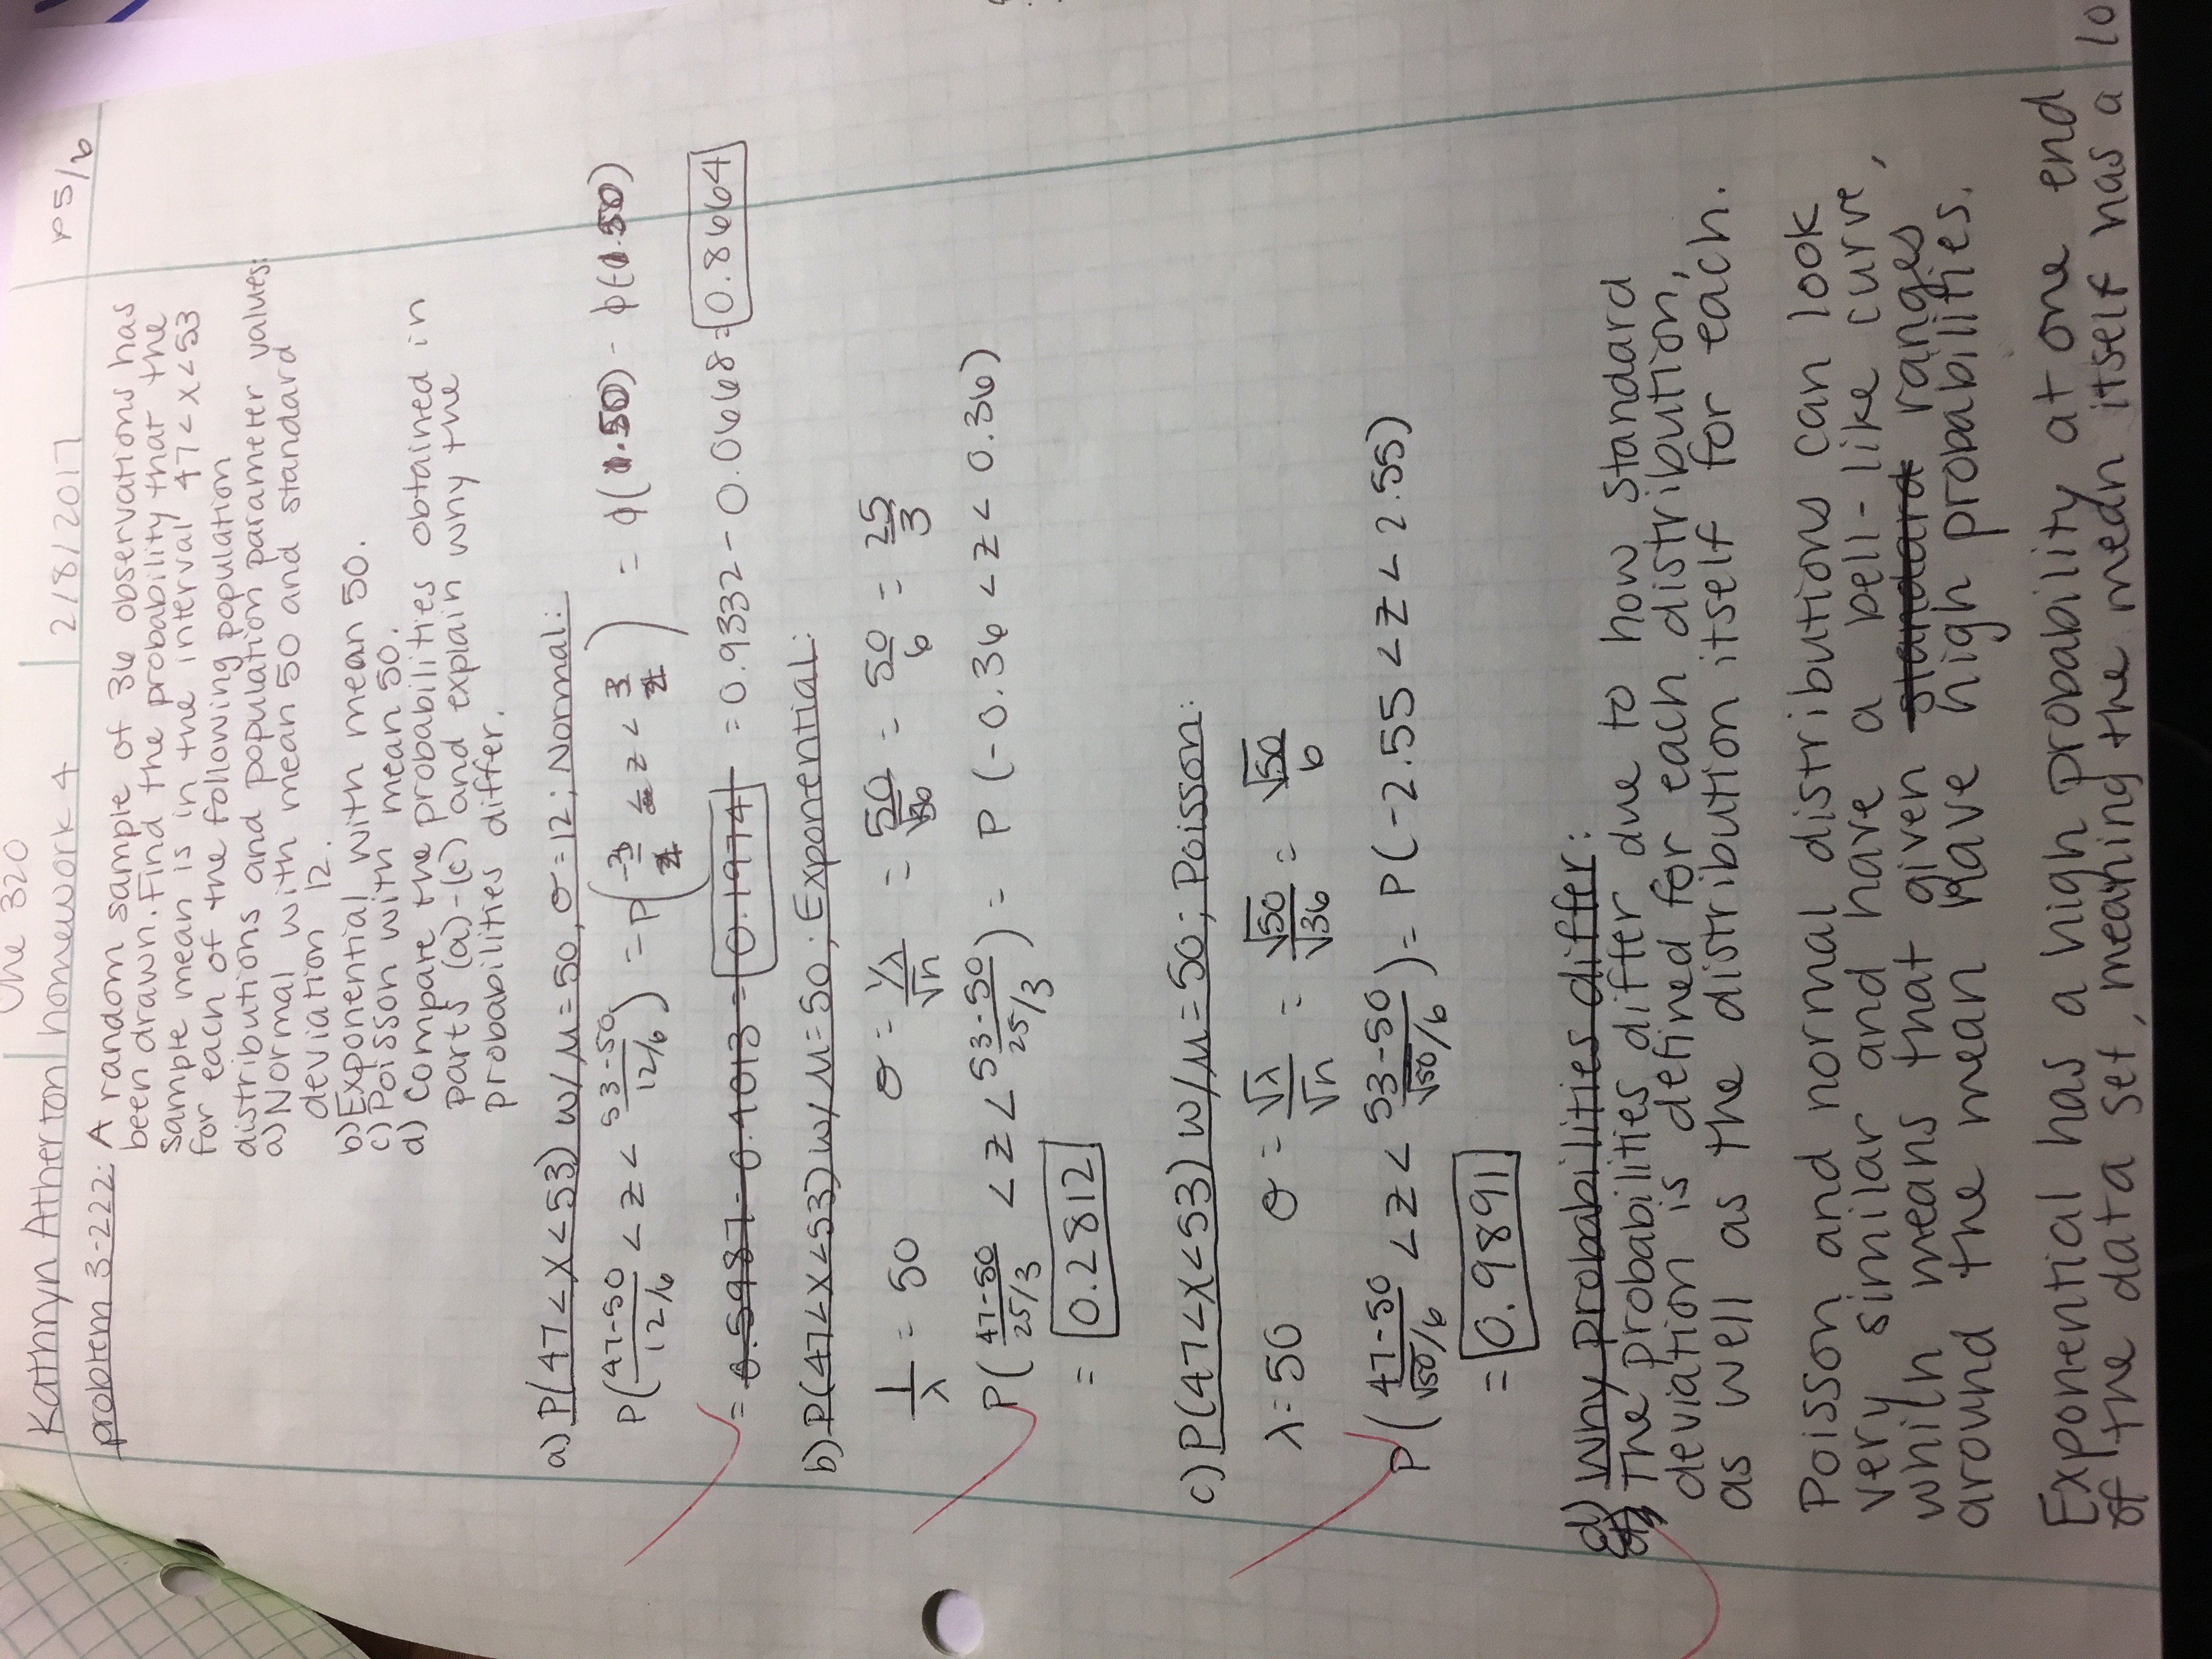 Che 320
Kathryn Atherton homework 4 2/8/2017 p5/6
problem 3-222: A random sample of 36 observations has
been drawn. Find the probability that the
sample mean is in the interval 47 < x < 53
for each of the following population
distributions and population parameter values:
a) Normal with mean 50 and standard
deviation 12.
b) Exponential with mean 50.
c) Poisson with mean 50.
d) Compare the probabilities obtained in
parts (a)-(c) and explain why the
probabilities differ.
a) P(47 < X < 53) w/ μ = 50, σ = 12; Normal:
P((47-50)/(12/6) < z < (53-50)/(12/6)) = P(-3/2 < z < 3/2) = ϕ(1.50) - ϕ(-1.50)
= 0.5987 - 0.4013 = 0.1974 = 0.9332 - 0.0668 = 0.8664
b) P(47 < X < 53) w/ μ = 50; Exponential:
1/λ = 50 σ = (1/λ)/√n = 50/√36 = 50/6 = 25/3
P((47-50)/(25/3) < z < (53-50)/(25/3)) = P(-0.36 < z < 0.36)
= 0.2812
c) P(47 < X < 53) w/ μ = 50; Poisson:
λ = 50 σ = √λ/√n = √50/√36 = √50/6
P((47-50)/(√50/6) < z < (53-50)/(√50/6)) = P(-2.55 < z < 2.55)
= 0.9891
d) Why probabilities differ:
The probabilities differ due to how standard
deviation is defined for each distribution,
as well as the distribution itself for each.
Poisson and normal distributions can look
very similar and have a bell-like curve,
which means that given standard ranges
around the mean have high probabilities.
Exponential has a high probability at one end
of the data set, meaning the mean itself has a lo